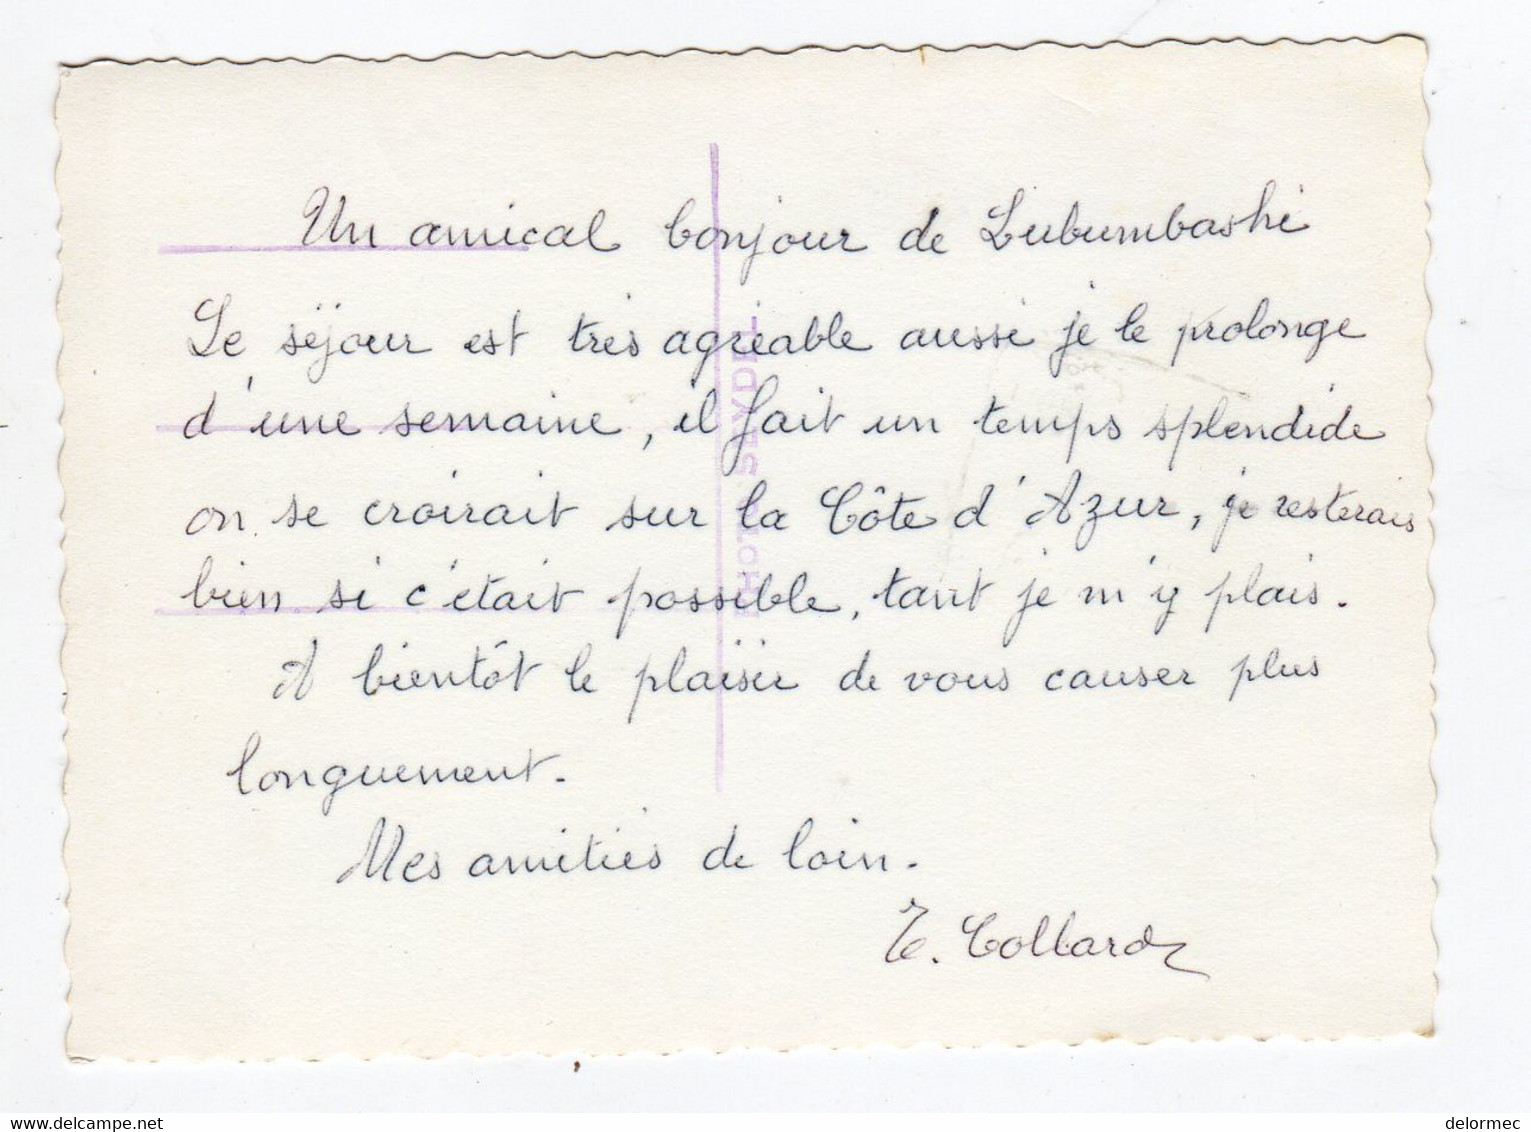 Un amical bonjour de Lubumbashi
Le séjour est très agréable aussi je le prolonge
d'une semaine, il fait un temps splendide
on se croirait sur la Côte d'Azur, je resterais
bien si c'était possible, tant je m'y plais.
A bientôt le plaisir de vous causer plus
longuement.
Mes amitiés de loin.
Collard
PHOTO SEYDEL
delcampe.net
delormec